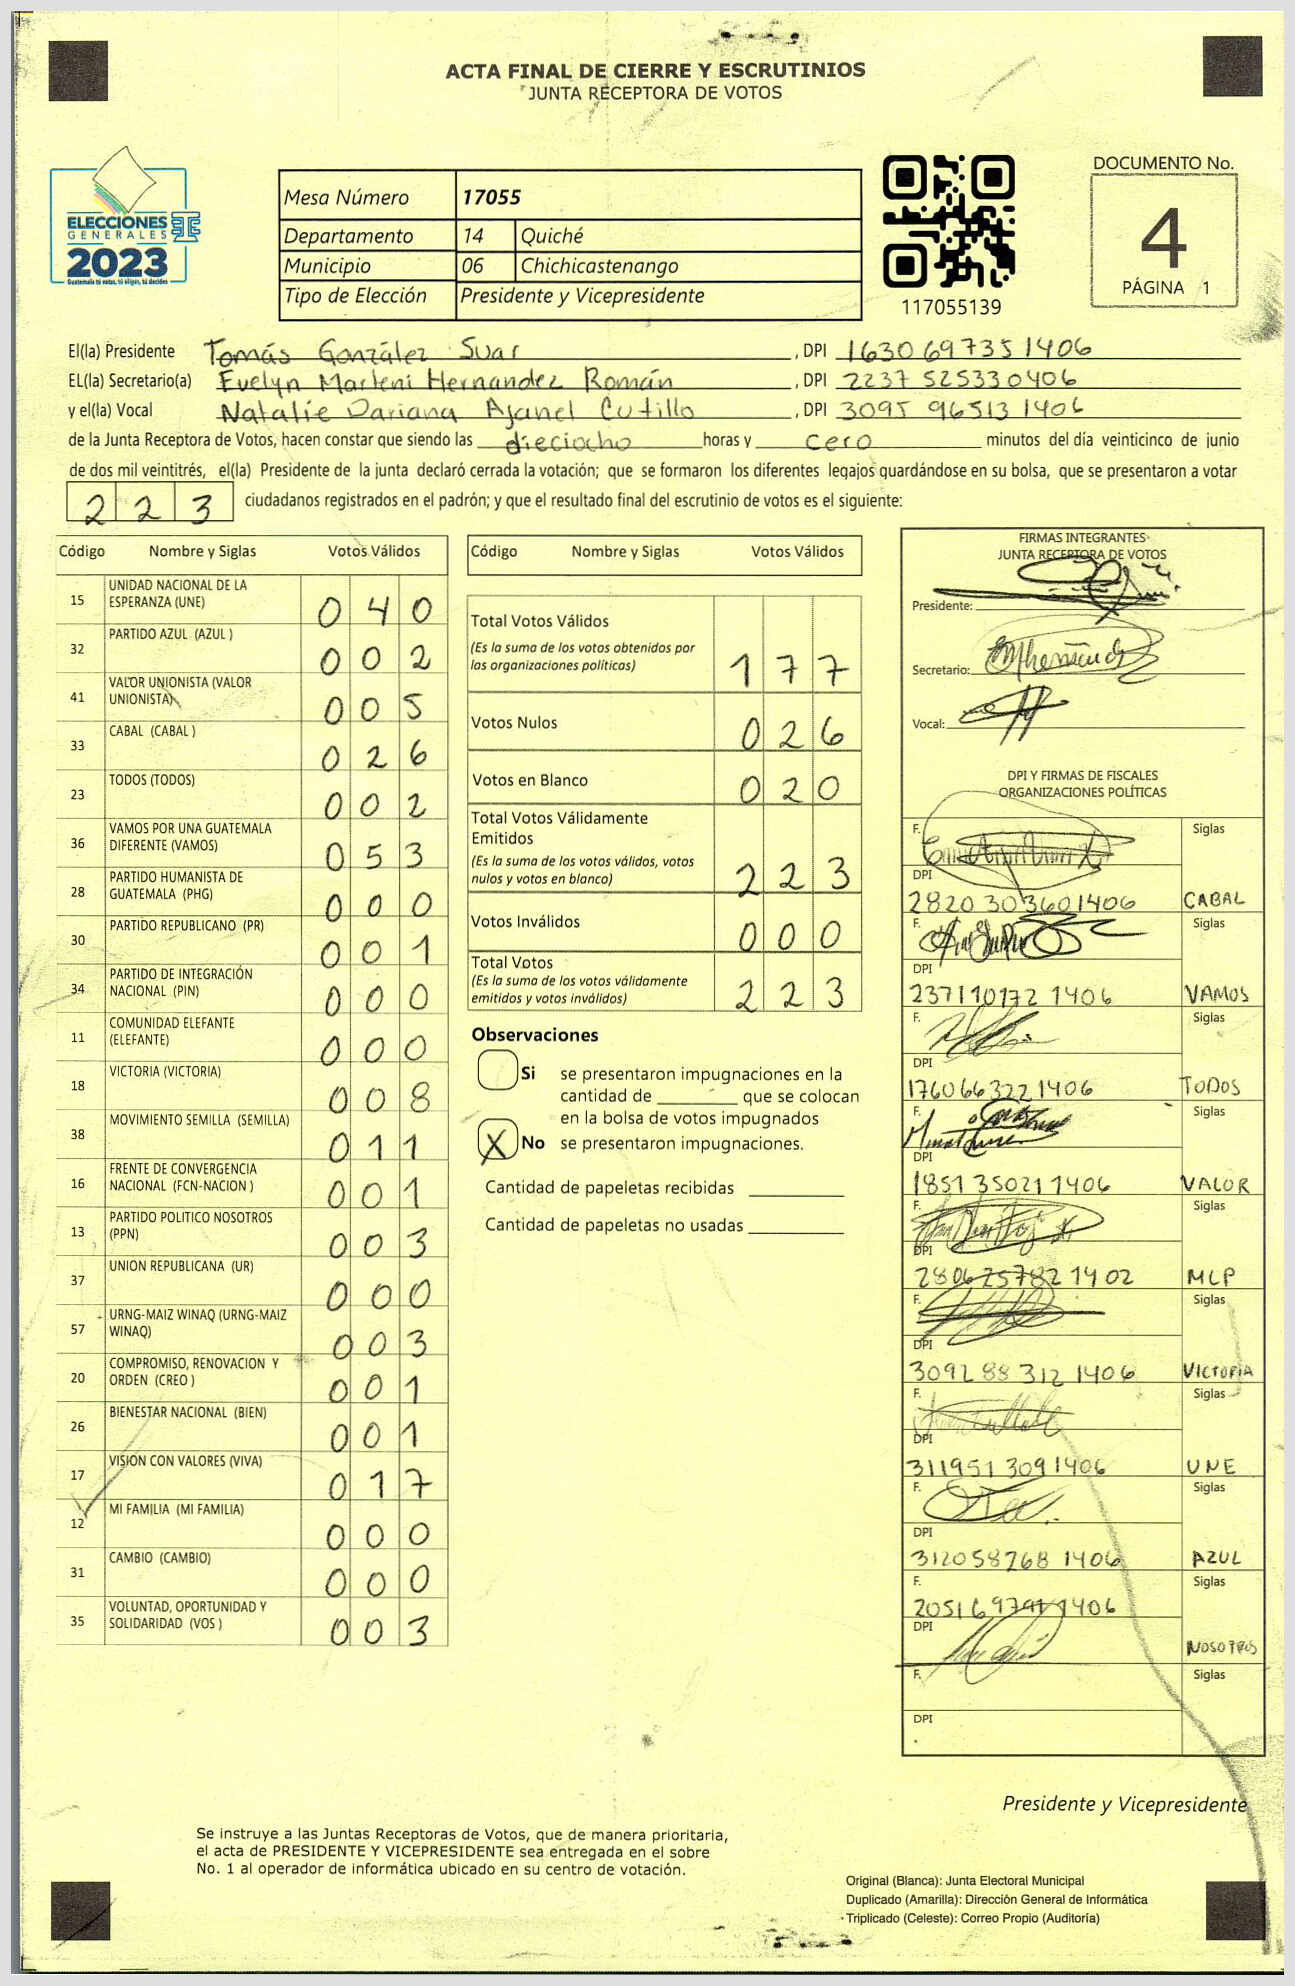 ACTA FINAL DE CIERRE Y ESCRUTINIOS
JUNTA RECEPTORA DE VOTOS
ELECCIONES
GENERALES
2023
Guatemala tú votas, tú eliges, tú decides
Mesa Número 17055
Departamento 14 Quiché
Municipio 06 Chichicastenango
Tipo de Elección Presidente y Vicepresidente
117055139
DOCUMENTO No.
4
PÁGINA 1
El(la) Presidente Tomás González Suar, DPI 1630697351406
EL(la) Secretario(a) Evelyn Marleni Hernandez Román, DPI 2237525330406
y el(la) Vocal Natalie Dariana Ajanel Cutillo, DPI 3095965131406
de la Junta Receptora de Votos, hacen constar que siendo las dieciocho horas y cero minutos del día veinticinco de junio
de dos mil veintitrés, el(la) Presidente de la junta declaró cerrada la votación; que se formaron los diferentes legajos guardándose en su bolsa, que se presentaron a votar
223 ciudadanos registrados en el padrón; y que el resultado final del escrutinio de votos es el siguiente:
Código Nombre y Siglas Votos Válidos
15 UNIDAD NACIONAL DE LA ESPERANZA (UNE) 040
32 PARTIDO AZUL (AZUL ) 002
41 VALOR UNIONISTA (VALOR UNIONISTA) 005
33 CABAL (CABAL ) 026
23 TODOS (TODOS) 002
36 VAMOS POR UNA GUATEMALA DIFERENTE (VAMOS) 053
28 PARTIDO HUMANISTA DE GUATEMALA (PHG) 000
30 PARTIDO REPUBLICANO (PR) 001
34 PARTIDO DE INTEGRACIÓN NACIONAL (PIN) 000
11 COMUNIDAD ELEFANTE (ELEFANTE) 000
18 VICTORIA (VICTORIA) 008
38 MOVIMIENTO SEMILLA (SEMILLA) 011
16 FRENTE DE CONVERGENCIA NACIONAL (FCN-NACION ) 001
13 PARTIDO POLITICO NOSOTROS (PPN) 003
37 UNION REPUBLICANA (UR) 000
57 URNG-MAIZ WINAQ (URNG-MAIZ WINAQ) 003
20 COMPROMISO, RENOVACION Y ORDEN (CREO ) 001
26 BIENESTAR NACIONAL (BIEN) 001
17 VISION CON VALORES (VIVA) 017
12 MI FAMILIA (MI FAMILIA) 000
31 CAMBIO (CAMBIO) 000
35 VOLUNTAD, OPORTUNIDAD Y SOLIDARIDAD (VOS ) 003
Código Nombre y Siglas Votos Válidos
Total Votos Válidos
(Es la suma de los votos obtenidos por
las organizaciones políticas) 177
Votos Nulos 026
Votos en Blanco 020
Total Votos Válidamente
Emitidos
(Es la suma de los votos válidos, votos
nulos y votos en blanco) 223
Votos Inválidos 000
Total Votos
(Es la suma de los votos válidamente
emitidos y votos inválidos) 223
Observaciones
Si se presentaron impugnaciones en la
cantidad de ________ que se colocan
en la bolsa de votos impugnados
X No se presentaron impugnaciones.
Cantidad de papeletas recibidas
Cantidad de papeletas no usadas
FIRMAS INTEGRANTES
JUNTA RECEPTORA DE VOTOS
Presidente:
Secretario:
Vocal:
DPI Y FIRMAS DE FISCALES
ORGANIZACIONES POLÍTICAS
F. Siglas
DPI
2820303601406 CABAL
F. Siglas
DPI
2371101721406 VAMOS
F. Siglas
DPI
1760663221406 TODOS
F. Siglas
DPI
1851350211406 VALOR
F. Siglas
DPI
2806757821402 MLP
F. Siglas
DPI
3092883121406 VICTORIA
F. Siglas
DPI
3119513091406 UNE
F. Siglas
DPI
3120587681406 AZUL
F. Siglas
DPI
NOSOTROS
F. Siglas
DPI
Presidente y Vicepresidente
Se instruye a las Juntas Receptoras de Votos, que de manera prioritaria,
el acta de PRESIDENTE Y VICEPRESIDENTE sea entregada en el sobre
No. 1 al operador de informática ubicado en su centro de votación.
Original (Blanca): Junta Electoral Municipal
Duplicado (Amarilla): Dirección General de Informática
Triplicado (Celeste): Correo Propio (Auditoría)